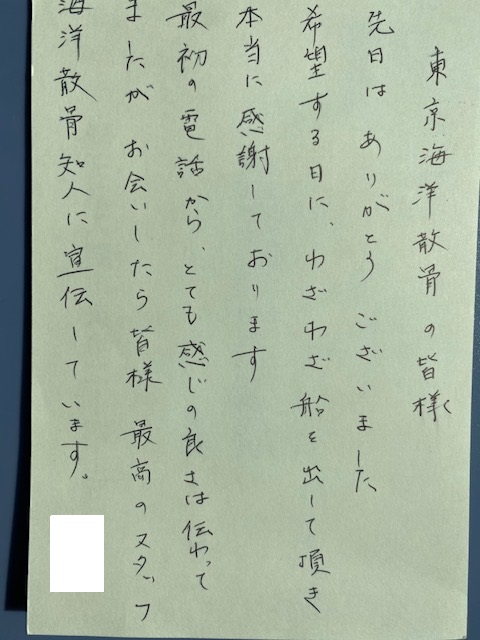 東京海洋散骨の皆様
先日はありがとうございました
希望する日に、わざわざ船を出して頂き
本当に感謝しております
最初の電話から、とても感じの良さは伝わって
ましたが お会いしたら皆様 最高のスタッフ
海洋散骨知人に宣伝しています。